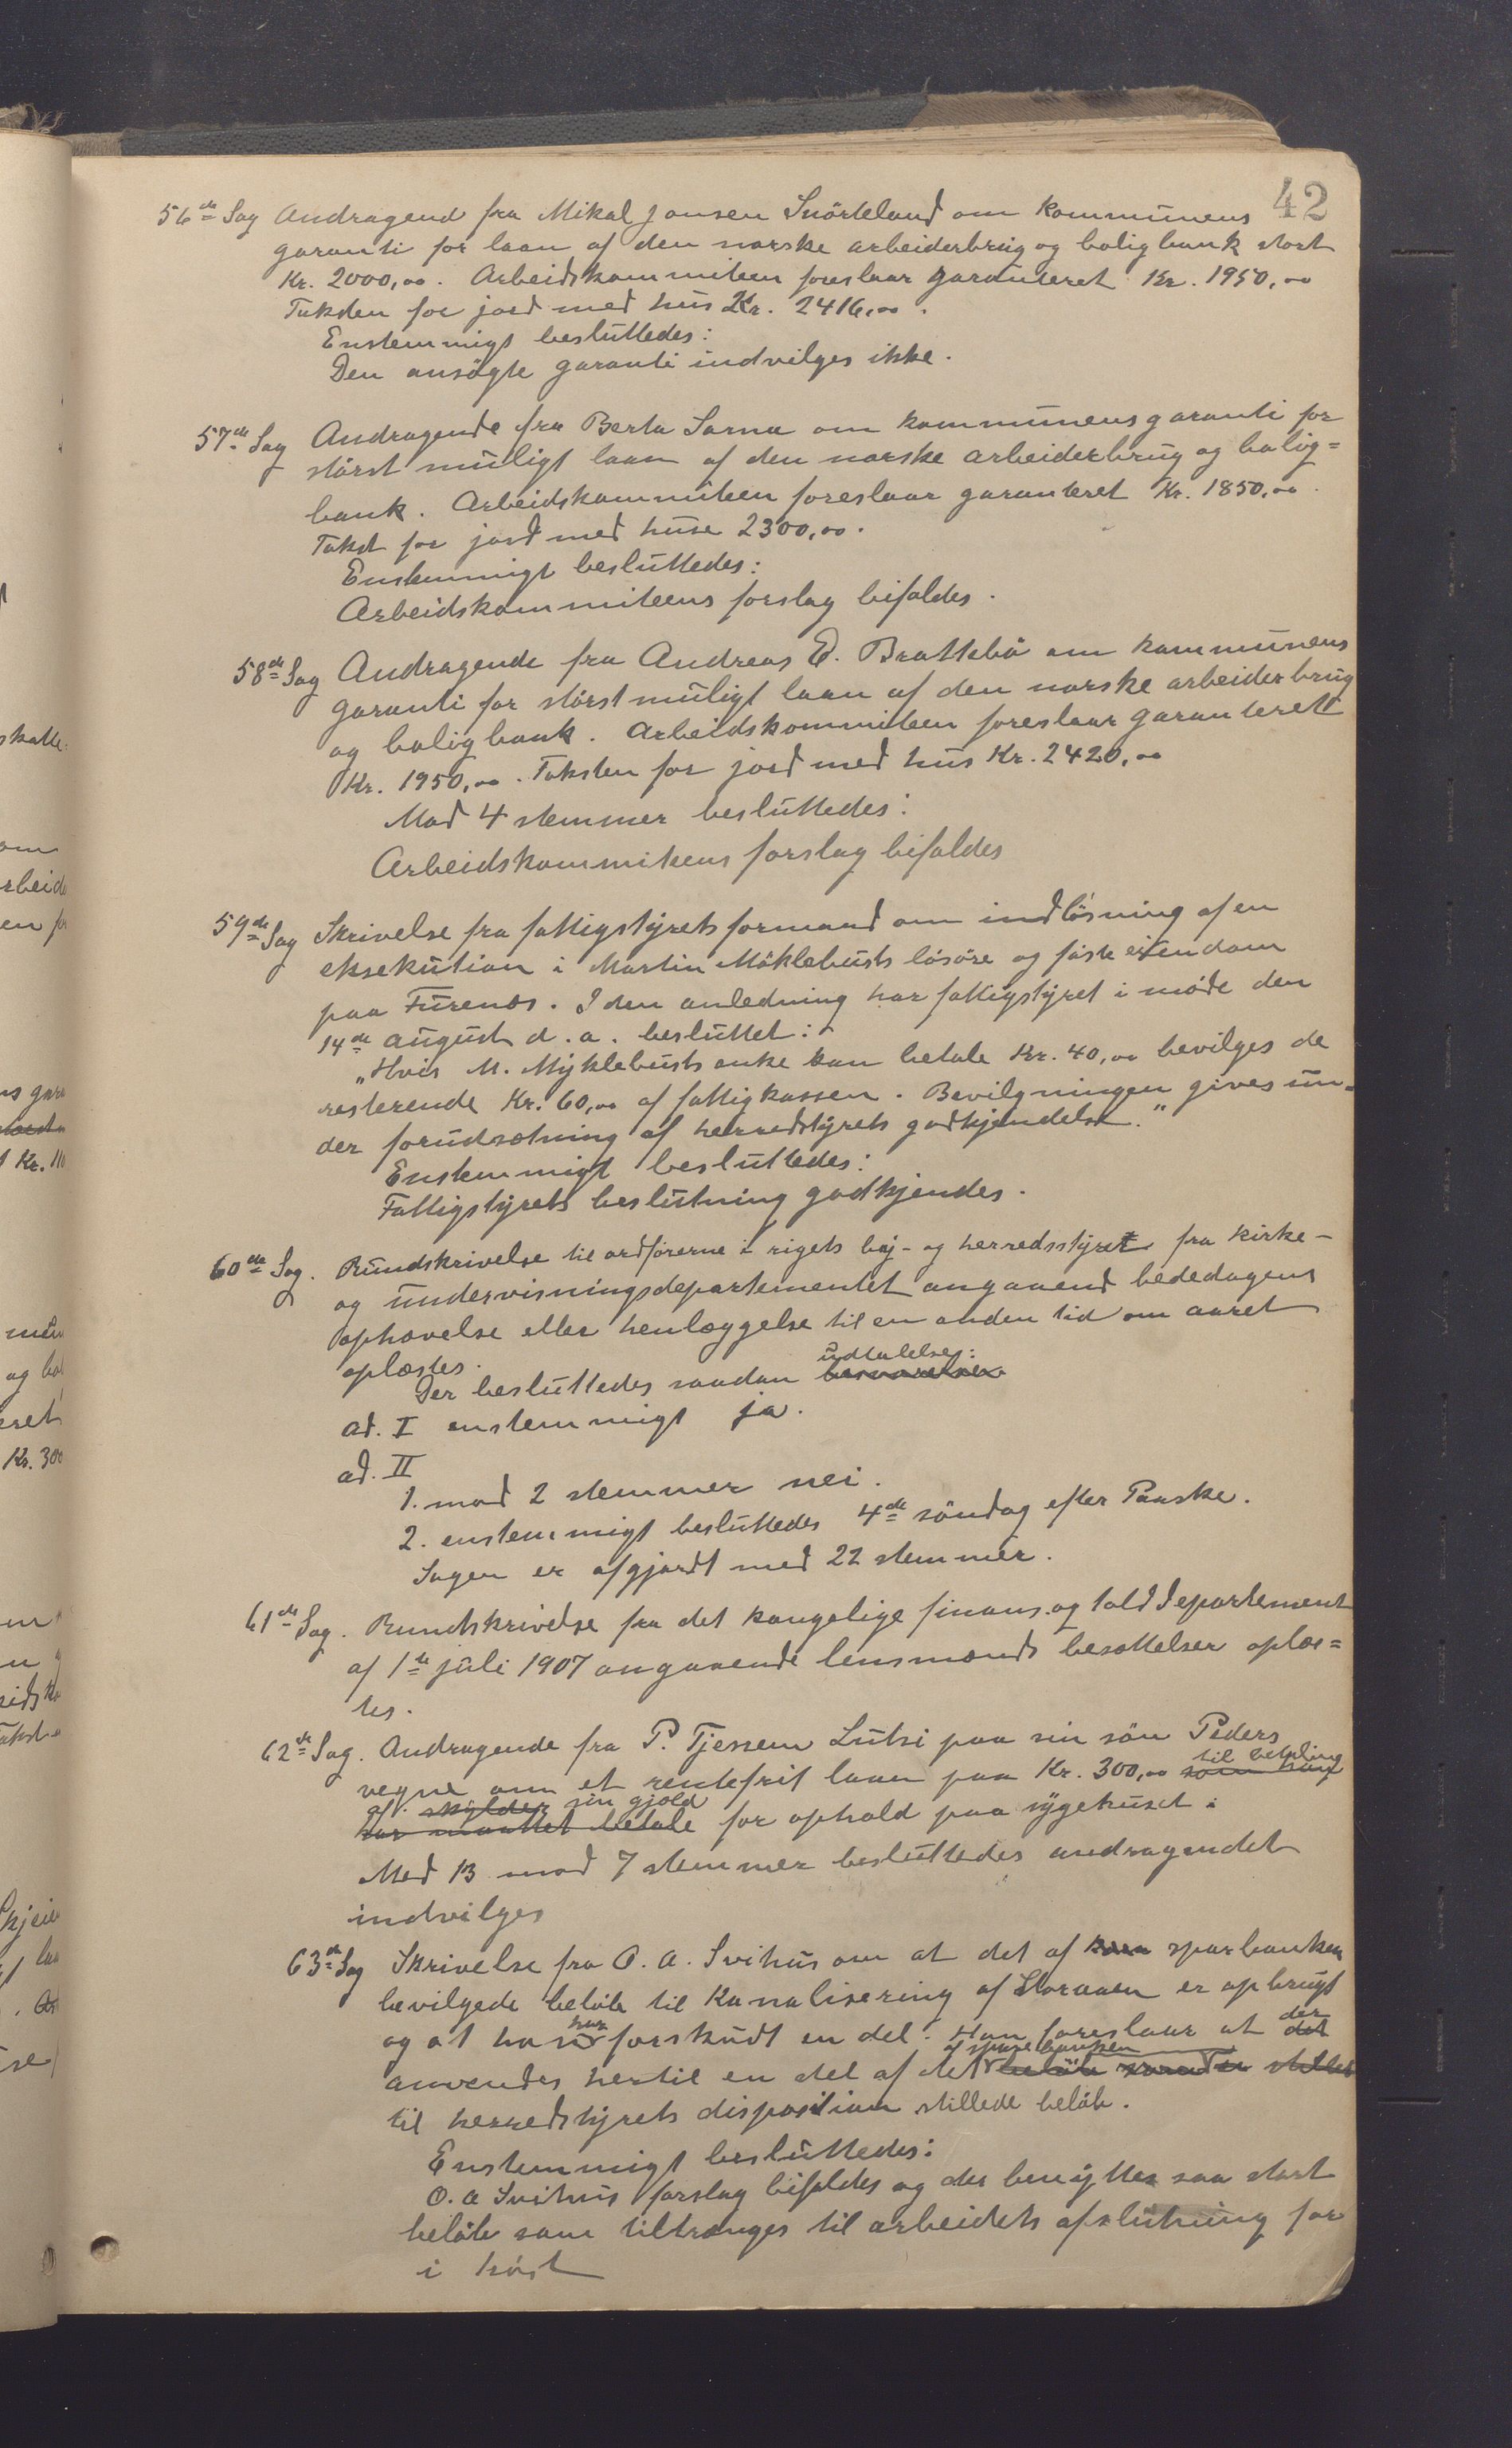 42
56de Sag Andragend fra Mikal Jonsen Snörteland om kommunens
garanti for laan af den norske arbeiderbrug og boligbank stort
Kr. 2000,00. Arbeidskommiteen foreslaar garanteret Kr. 1950,00
Taksten for jord med hus Kr. 2416,00.
Enstemmigt besluttedes:
Den ansögte garanti indvilges ikke.
57de Sag Andragende fra Berta Sarna om kommunens garanti for
störst muligt laan af den norske arbeiderbrug og bolig=
bank. Arbeidskommiteen foreslaar garanteret Kr. 1850,00.
Takst for jord med huse 2300,00.
Enstemmigt besluttedes:
Arbeidskommiteens forslag bifaldes.
58de Sag Andragende fra Andreas E. Brattebö om kommunens
garanti for störst muligt laan af den norske arbeiderbrug
og boligbank. Arbeidskommiteen foreslaar garanteret
Kr. 1950,00. Taksten for jord med hus Kr. 2420,00
Mod 4 stemmer besluttedes:
Arbeidskommiteens forslag bifaldes
59de Sag Skrivelse fra fattigstyrets formand om indlösning af en
eksekution i Martin Möklebusts lösöre og faste eiendom
paa Furenes. I den anledning har fattigstyret i möde den
14de august d. a. besluttet:
"Hvis M. Myklebusts enke kan betale Kr. 40,00 bevilges de
resterende Kr. 60,00 af fattigkassen. Bevilgningen gives un=
der forudsætning af herredstyrets godkjendelse."
Enstemmigt besluttedes:
Fattigstyrets beslutning godkjendes.
60de Sag. Rundskrivelse til ordförerne i rigets by- og herredsstyret fra kirke-
og undervisningsdepartementet angaaend bededagens
ophævelse eller henlæggelse til en anden tid om aaret
oplæstes.
Der besluttedes saadan udtalelse: besvarelse
ad. I enstemmigt ja.
ad. II
1. mod 2 stemmer nei.
2. enstemmigt besluttedes 4de söndag efter Paaske.
Sagen er afgjordt med 22 stemmer.
61de Sag. Rundskrivelse fra det kongelige finans og told departement
af 1ste juli 1907 angaaende lensmænds besættelser oplæs=
tes.
62de Sag. Andragende fra P. Tjessem Lutsi paa sin sön Peders
vegne om et rentefrit laan paa Kr. 300,00 som han til betaling
af skylder sin gjæld
har maattet betale for ophold paa sygehuset.
Med 13 mod 7 stemmer besluttedes andragendet
indvilges
63de Sag Skrivelse fra O. A. Svihus om at det af sparbanken
bevilgede belöb til Kanalisering af Storaaen er opbrugt
og at han har forskudt en del. Han foreslaar at det der
anvendes hertil en del af det af sparebanken belöb
til herredstyrets disposition stillede belöb.
Enstemmigt besluttedes:
O. A Svihus forslag bifaldes og der benyttes saa stort
belöb som tiltrænges til arbeidets afslutning for
i höst